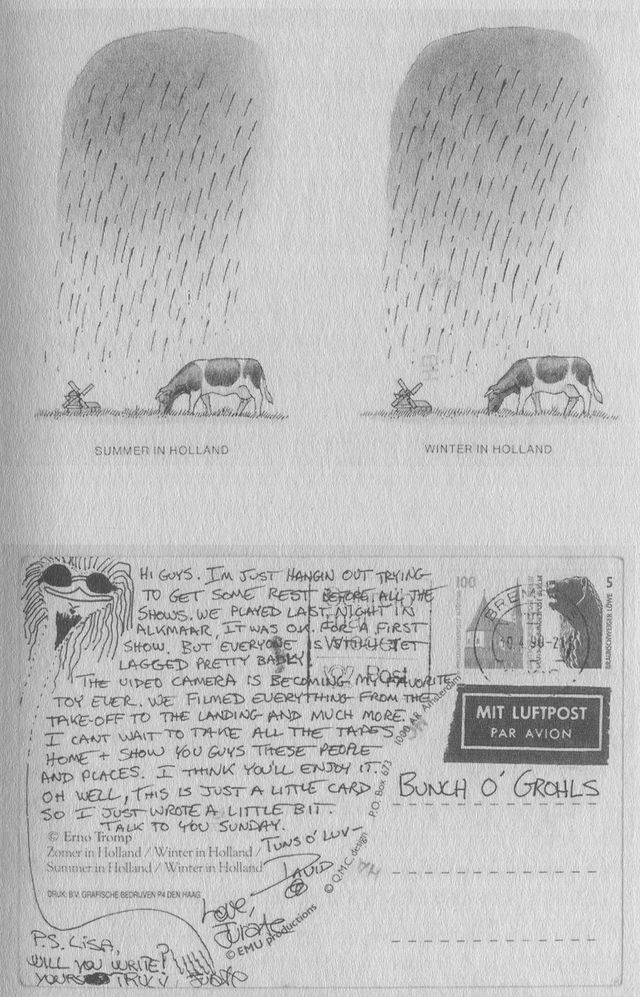 SUMMER IN HOLLAND
WINTER IN HOLLAND
HI GUYS. I'M JUST HANGIN OUT TRYING
TO GET SOME REST BEFORE ALL THE
SHOWS. WE PLAYED LAST NIGHT IN
ALKMAAR, IT WAS OK. FOR A FIRST
SHOW. BUT EVERYONE IS STILL JET
LAGGED PRETTY BADLY.
THE VIDEO CAMERA IS BECOMING MY FAVORITE
TOY EVER. WE FILMED EVERYTHING FROM THE
TAKE-OFF TO THE LANDING AND MUCH MORE.
I CANT WAIT TO TAKE ALL THE TAPES
HOME + SHOW YOU GUYS THESE PEOPLE
AND PLACES. I THINK YOU'LL ENJOY IT.
OH WELL, THIS IS JUST A LITTLE CARD
SO I JUST WROTE A LITTLE BIT.
TALK TO YOU SUNDAY.
TUNS O' LUV-
DAVID
© Erno Tromp
Zomer in Holland / Winter in Holland
Summer in Holland / Winter in Holland
DRUK: B.V. GRAFISCHE BEDRIJVEN P4 DEN HAAG
LOVE,
© EMU productions
© Q.M.C. design
P.O. Box 673
1000 AR Amsterdam
P.S. LISA,
WILL YOU WRITE?
YOURS TRULY,
100
5
BRAUNSCHWEIGER LÖWE
MIT LUFTPOST
PAR AVION
BUNCH O' GROHLS